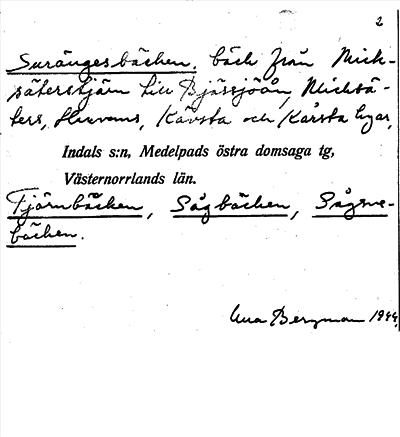 2
Suränges bäcken, bäck från Mick-
säterstjärn till Bjässjöån, Micksä-
ters, Kävsta och Kårsta byar,
Indals s:n, Medelpads östra domsaga tg,
Västernorrlands län.
Tjärnbäcken, Sågbäcken, Sågne-
bäcken.
Bergman 1944.